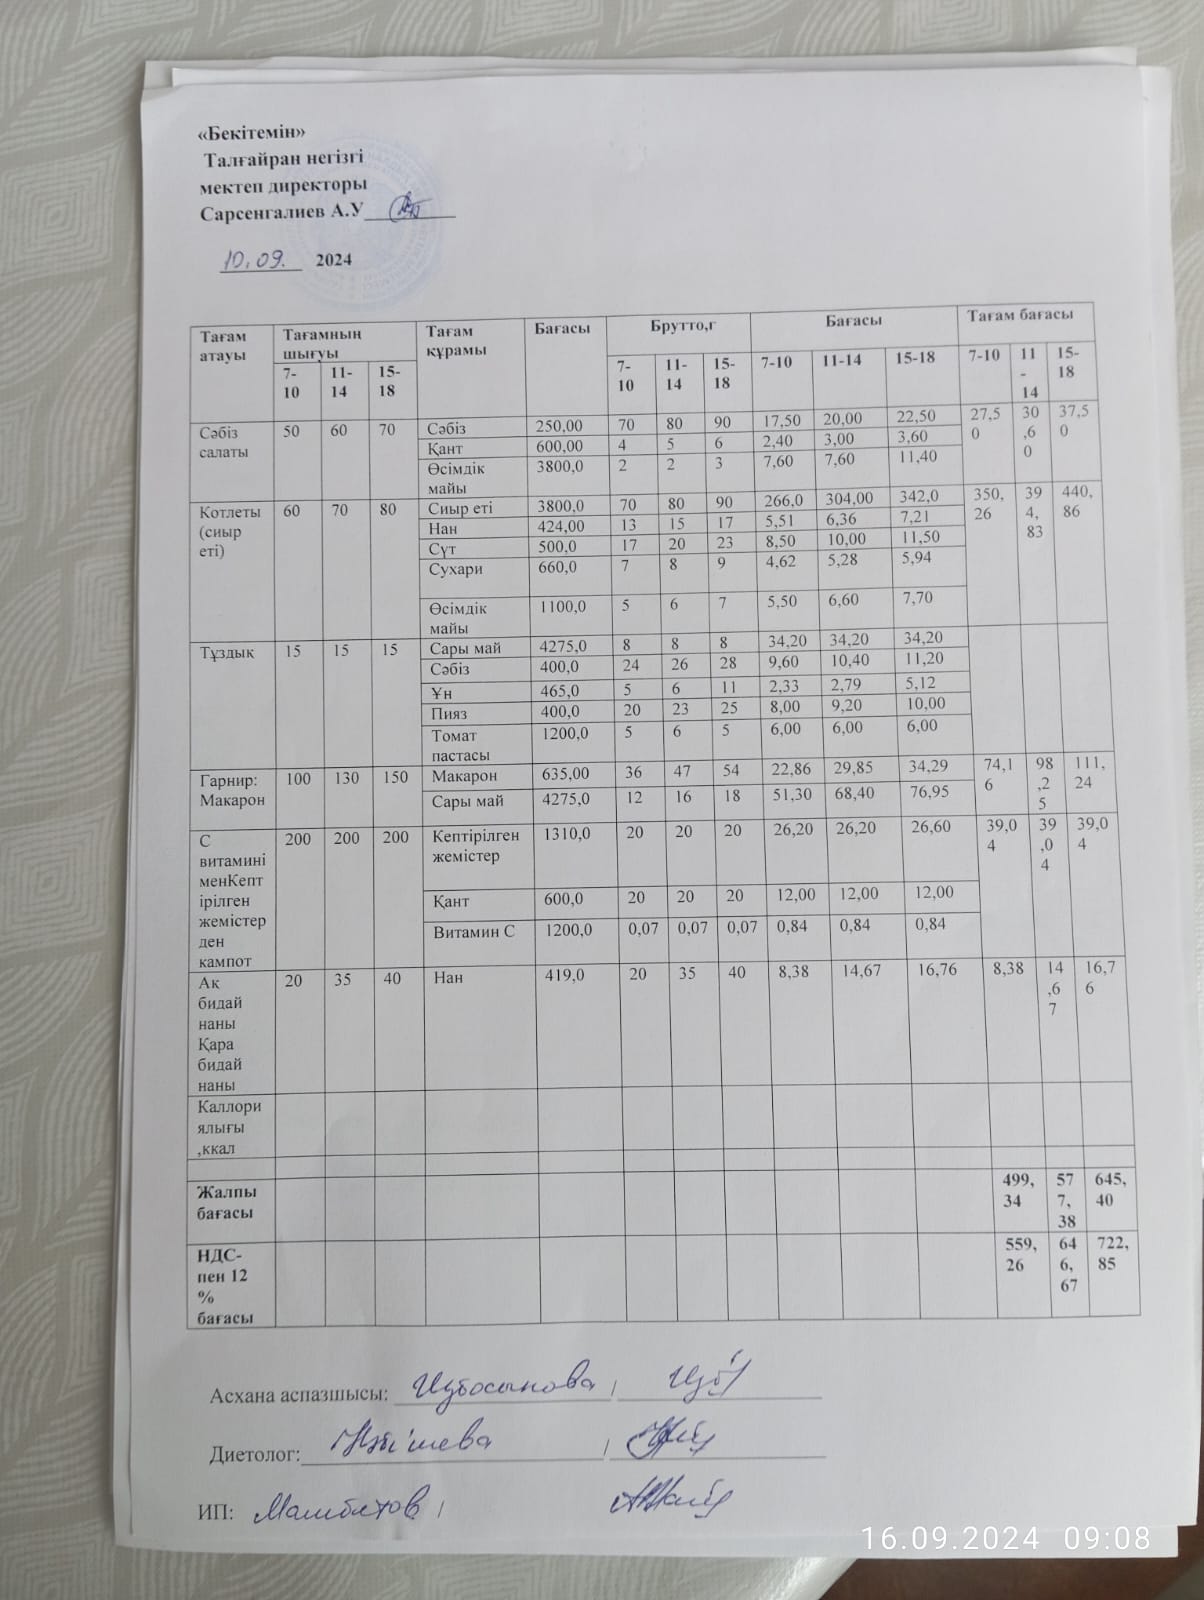 «Бекітемін»
Талғайран негізгі
мектеп директоры
Сарсенгалиев А.У
10.09. 2024
Тағам атауы | Тағамның шығуы | Тағам құрамы | Бағасы | Брутто,г | Бағасы | Тағам бағасы
7-10 | 11-14 | 15-18 | 7-10 | 11-14 | 15-18 | 7-10 | 11-14 | 15-18 | 7-10 | 11-14 | 15-18
Сәбіз салаты | 50 | 60 | 70 | Сәбіз | 250,00 | 70 | 80 | 90 | 17,50 | 20,00 | 22,50 | 27,50 | 30,60 | 37,50
Қант | 600,00 | 4 | 5 | 6 | 2,40 | 3,00 | 3,60
Өсімдік майы | 3800,0 | 2 | 2 | 3 | 7,60 | 7,60 | 11,40
Котлеты (сиыр еті) | 60 | 70 | 80 | Сиыр еті | 3800,0 | 70 | 80 | 90 | 266,0 | 304,00 | 342,0 | 350,26 | 394,83 | 440,86
Нан | 424,00 | 13 | 15 | 17 | 5,51 | 6,36 | 7,21
Сүт | 500,0 | 17 | 20 | 23 | 8,50 | 10,00 | 11,50
Сухари | 660,0 | 7 | 8 | 9 | 4,62 | 5,28 | 5,94
Өсімдік майы | 1100,0 | 5 | 6 | 7 | 5,50 | 6,60 | 7,70
Тұздық | 15 | 15 | 15 | Сары май | 4275,0 | 8 | 8 | 8 | 34,20 | 34,20 | 34,20
Сәбіз | 400,0 | 24 | 26 | 28 | 9,60 | 10,40 | 11,20
Ұн | 465,0 | 5 | 6 | 11 | 2,33 | 2,79 | 5,12
Пияз | 400,0 | 20 | 23 | 25 | 8,00 | 9,20 | 10,00
Томат пастасы | 1200,0 | 5 | 6 | 5 | 6,00 | 6,00 | 6,00
Гарнир: Макарон | 100 | 130 | 150 | Макарон | 635,00 | 36 | 47 | 54 | 22,86 | 29,85 | 34,29 | 74,16 | 98,25 | 111,24
Сары май | 4275,0 | 12 | 16 | 18 | 51,30 | 68,40 | 76,95
С витамині менКептірілген жемістерден кампот | 200 | 200 | 200 | Кептірілген жемістер | 1310,0 | 20 | 20 | 20 | 26,20 | 26,20 | 26,60 | 39,04 | 39,04 | 39,04
Қант | 600,0 | 20 | 20 | 20 | 12,00 | 12,00 | 12,00
Витамин С | 1200,0 | 0,07 | 0,07 | 0,07 | 0,84 | 0,84 | 0,84
Ак бидай наны Қара бидай наны | 20 | 35 | 40 | Нан | 419,0 | 20 | 35 | 40 | 8,38 | 14,67 | 16,76 | 8,38 | 14,67 | 16,76
Каллориялығы ,ккал
Жалпы бағасы | 499,34 | 577,38 | 645,40
НДС-пен 12 % бағасы | 559,26 | 646,67 | 722,85
Асхана аспазшысы:
Диетолог:
ИП: Мамбетов
16.09.2024 09:08